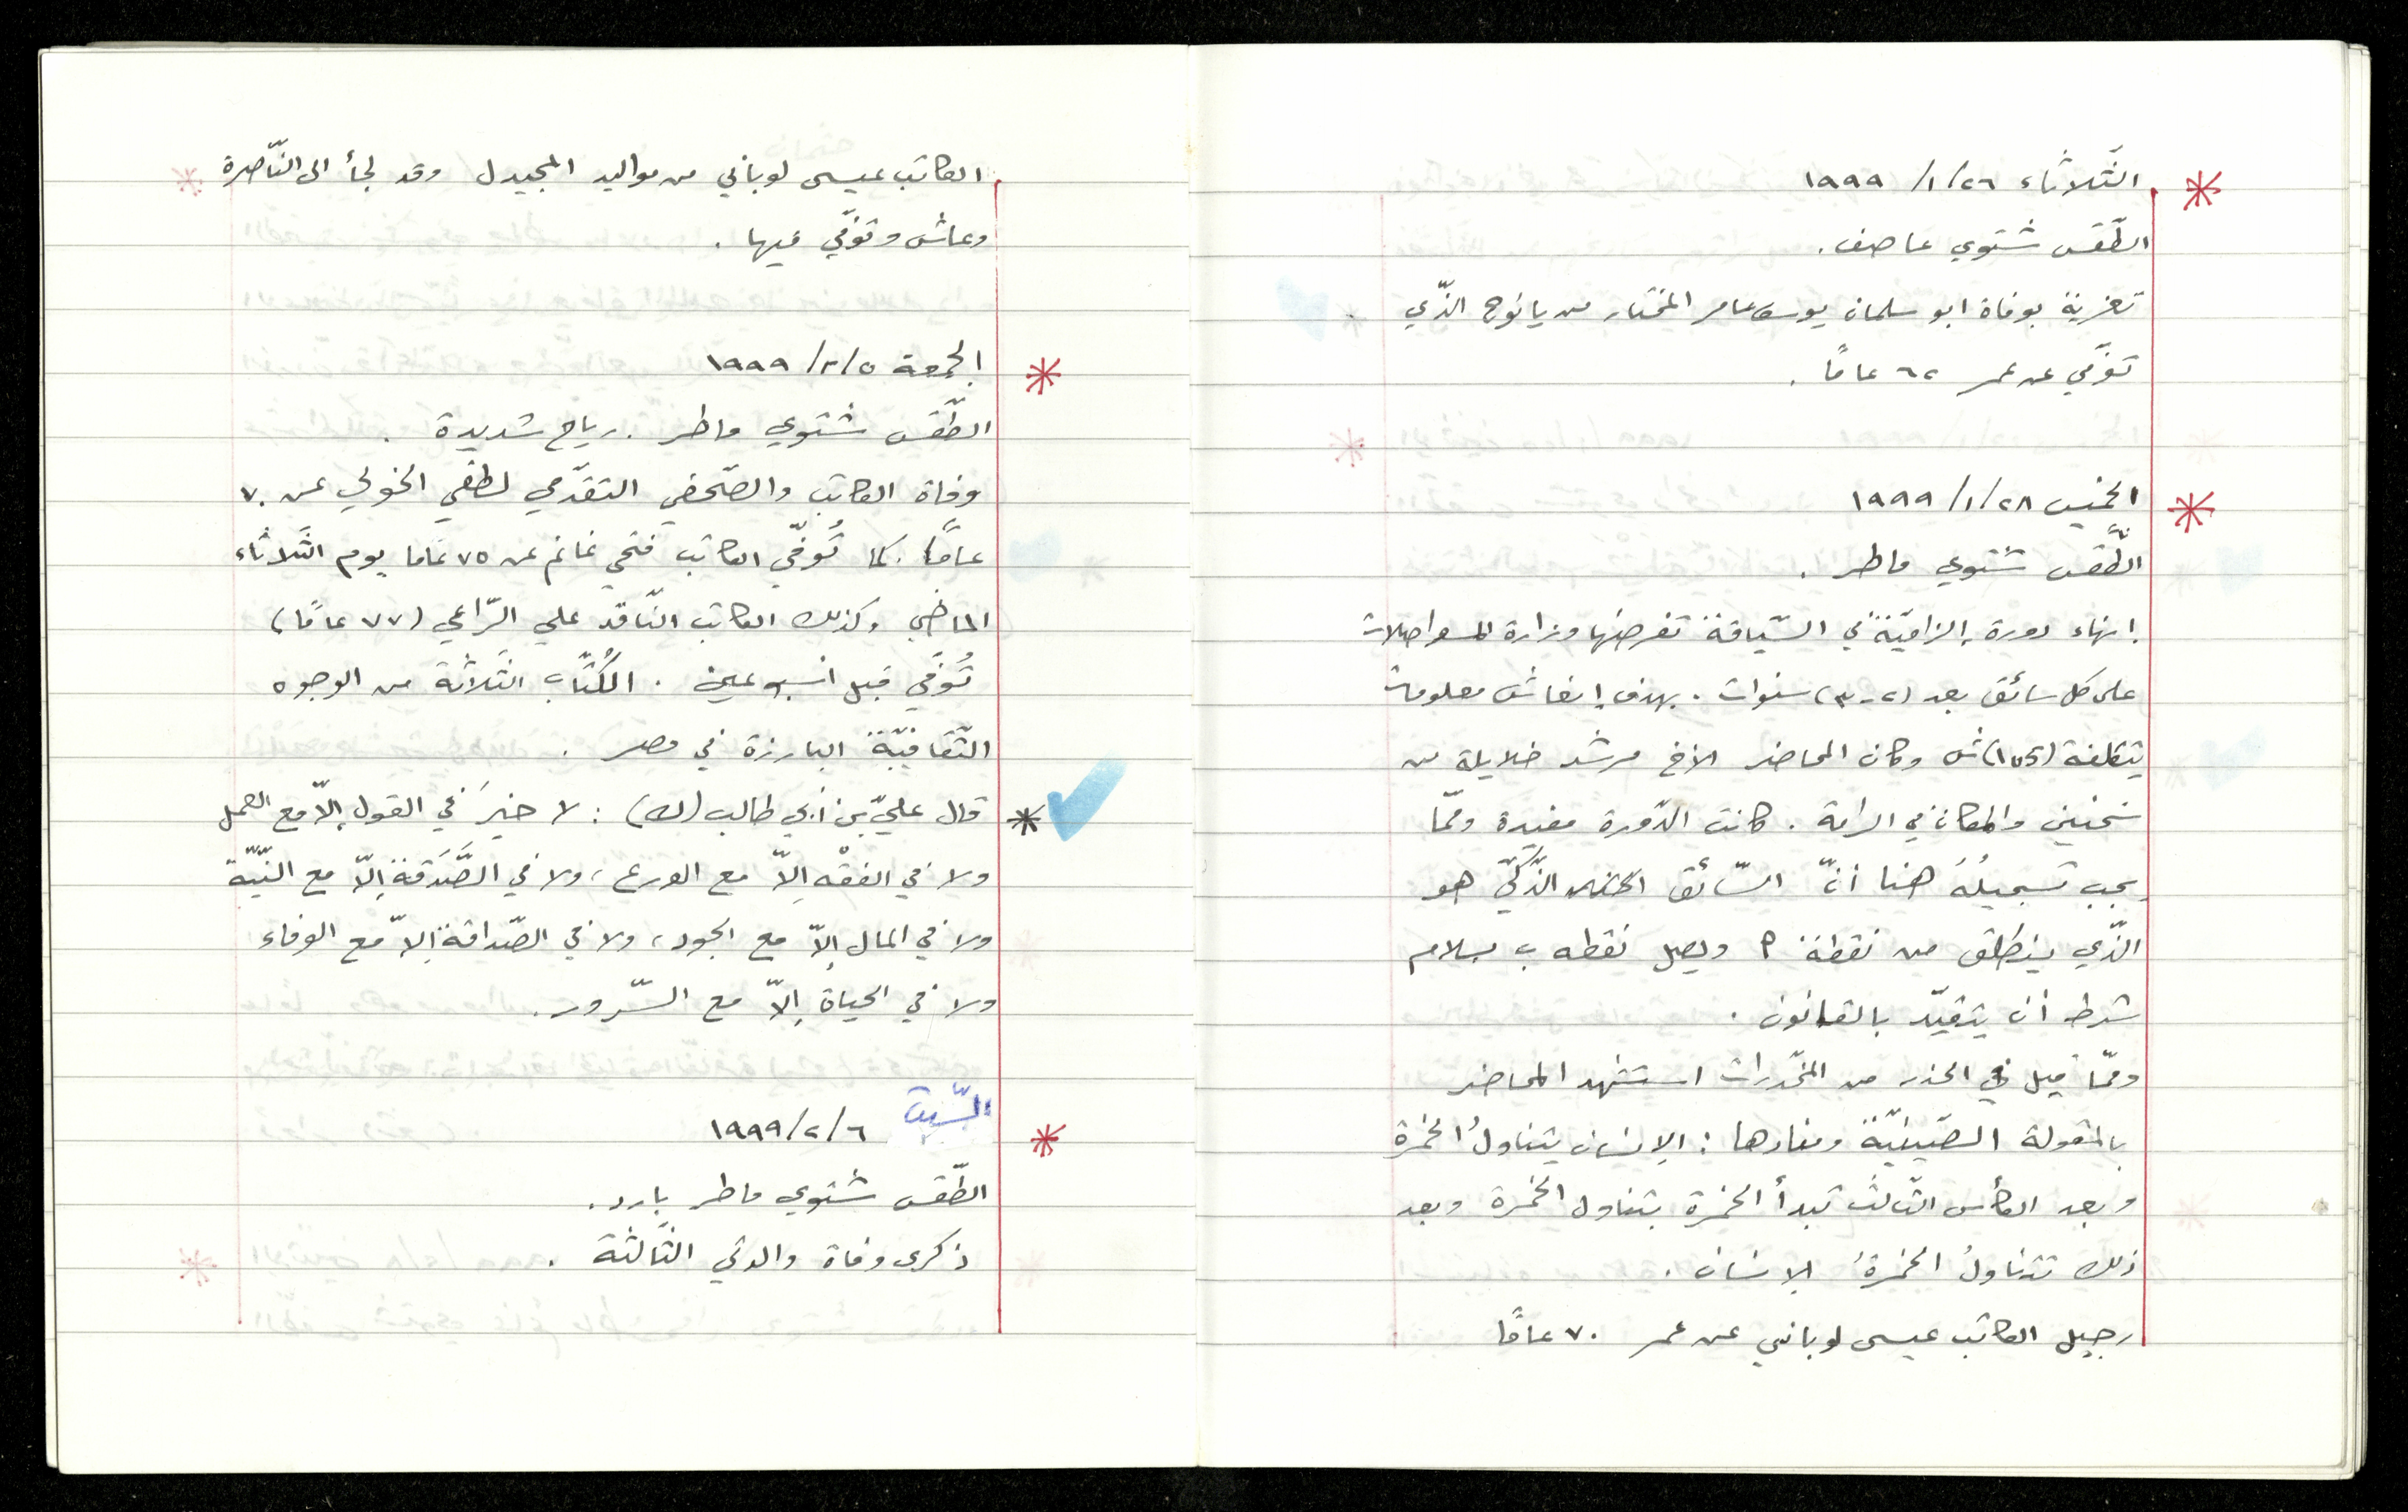 * الثّلاثاء ٢٦/١/١٩٩٩
الطّقس شتوي عاصف.
تعزية بوفاة ابو سلمان يوسف عامر المختار من يانوح الذّي
توفّي عن عمر ٦٢ عامًا.
* الخميس ٢٨/١/١٩٩٩
الطّقس شتوي ماطر.
إنهاء دورة إلزاميّة في السّياقة تفرضها وزارة المواصلات
على كل سائق بعد (٢-٣) سنوات. بهدف إنعاش معلومات
بتكلفة (١٥٥) ش وكان المحاضر الأخ مرشد خلايلة من
سخنين والمكان في الرامة. كانت الدّورة مفيدة وممّا
يجب تسجيلُهُ هنا أنّ السّائق الذّكيّ هو
الذّي ينطلق من نقطة أ ويصل نقطه ب بسلام
شرط أن يتقيّد بالقانون.
وممّا قيل في الحذر من المخّدرات استشهد المحاضر
بالمقولة الصّينيّة ومفادها: الإنسان يتناولُ الخمرة
وبعد الكأس الثّالث تبدأ الخمرة بتناول الخمرة وبعد
ذلك تتناولُ الخمرةُ الإنسان.
رحيل الكاتب عيسى لوباني عن عمر ٧٠ عامًا
الكاتب عيسى لوباني من مواليد المجيدل وقد لجأ الى النّاصرة
وعاش وتوفّي فيها.
* الجمعة ٥/٢/١٩٩٩
الطّقس شتوي ماطر. رياح شديدة.
وفاة الكاتب والصّحفي التقدّمي لطفي الخولي عن ٧٠
عامًا. كما تُوفّي الكاتب فتحي غانم عن ٧٥ عاما يوم الثّلاثاء
الماضي وكذلك الكاتب النّاقد علي الرّاعي (٧٧ عامًا)
تُوفّي قبل أسبوعين. الكُتّاب الثّلاثة من الوجوه
الثّقافيّة البارزة في مصر.
* قال عليّ بن أبي طالب (ك): لا خيرَ في القول إلّا مع العمل
ولا في الفقْه إلّا مع الورع، ولا في الصَّدَقة إلّا مع النّيّة
ولا في المال إلّا مع الجود، ولا في الصّداقة إلّا مع الوفاء
ولا في الحياة إلّا مع السّرور.
* السّبت ٦/٢/١٩٩٩
الطّقس شتوي ماطر بارد.
ذكرى وفاة والدتي الثّالثة.